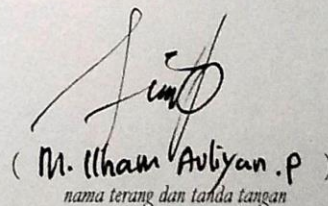 ( M. Ilham Auliyan . P )
nama terang dan tanda tangan